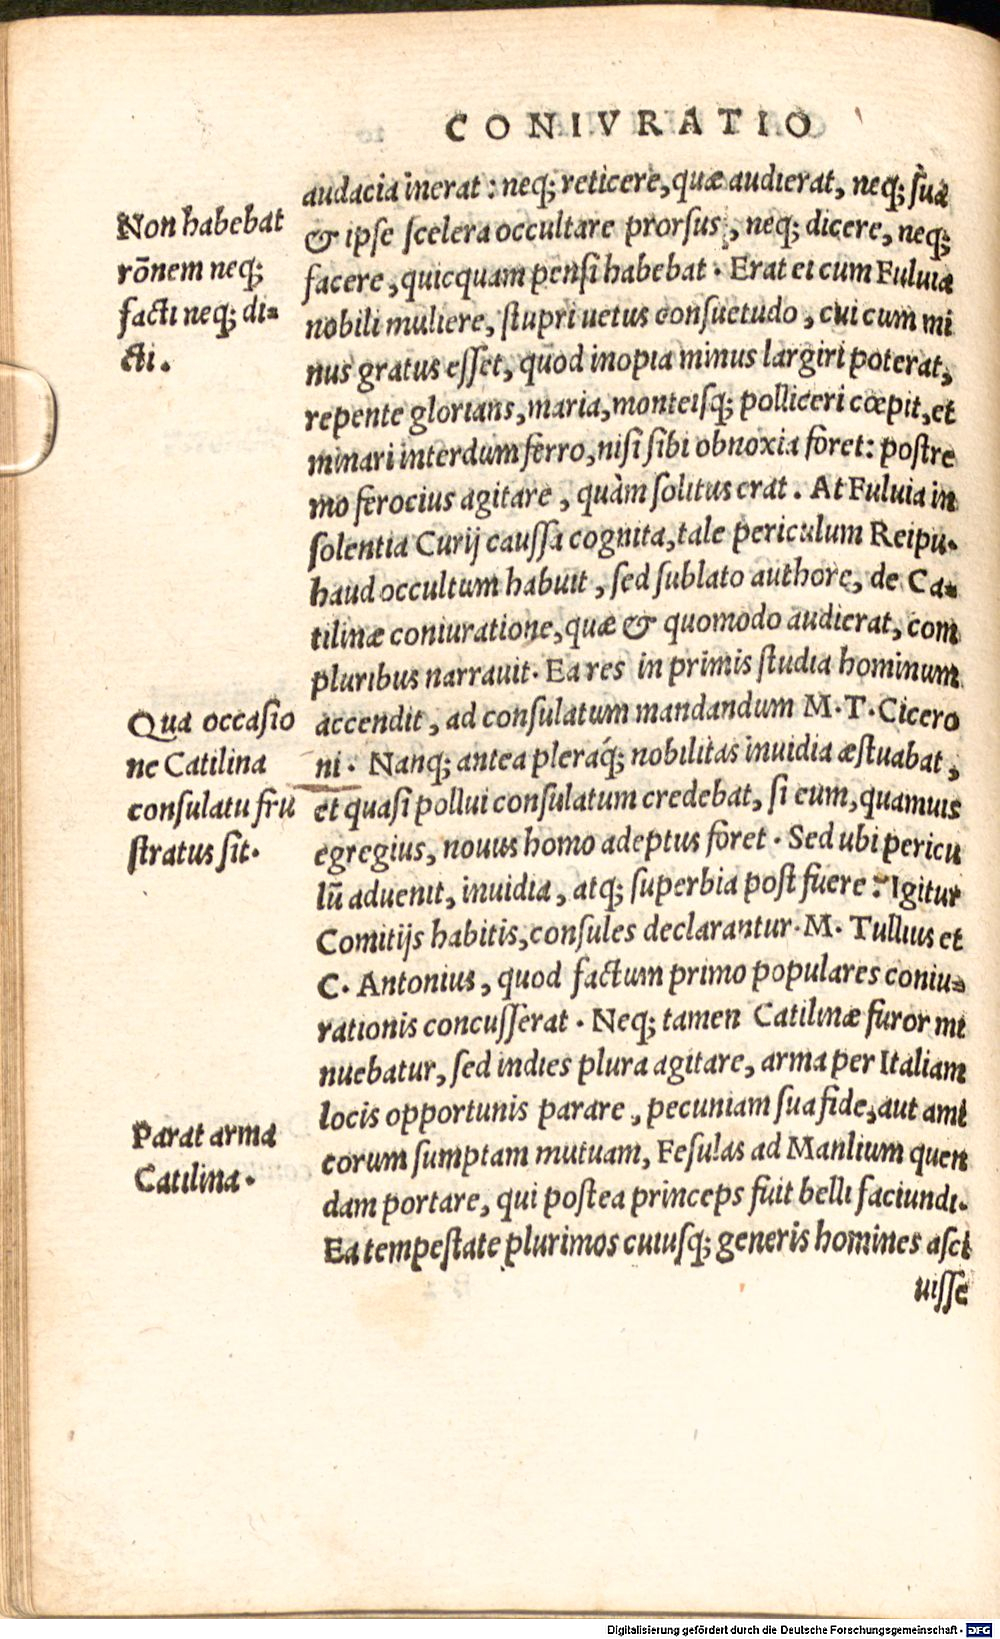 CONIVRATIO
audacia inerat: neq; reticere, quæ audierat, neq; suã
& ipse scelera occultare prorsus, neq; dicere, neq;
facere, quicquam pensi habebat. Erat ei cum Fuluia
nobili muliere, stupri uetus consuetudo, cui cum mi
nus gratus esset, quod inopia minus largiri poterat,
repente glorians, maria, monteisq; polliceri cœpit, et
minari interdum ferro, nisi sibi obnoxia foret: postre
mo ferocius agitare, quàm solitus erat. At Fuluia in
solentia Curij caussa cognita, tale periculum Reipu.
haud occultum habuit, sed sublato authore, de Ca=
tilinæ coniuratione, quæ & quomodo audierat, com
pluribus narrauit. Ea res in primis studia hominum
accendit, ad consulatum mandandum M. T. Cicero
ni. Nanq; antea pleráq; nobilitas inuidia æstuabat,
et quasi pollui consulatum credebat, si eum, quamuis
egregius, nouus homo adeptus foret. Sed ubi pericu
lũ aduenit, inuidia, atq; superbia post fuere. Igitur
Comitijs habitis, consules declarantur. M. Tullius et
C. Antonius, quod factum primo populares coniu=
rationis concusserat. Neq; tamen Catilinæ furor mi
nuebatur, sed indies plura agitare, arma per Italiam
locis opportunis parare, pecuniam sua fide, aut ami
corum sumptam mutuam, Fesulas ad Manlium quen
dam portare, qui postea princeps fuit belli faciundi.
Ea tempestate plurimos cuiusq; generis homines asci
uisse
Non habebat
rõnem neq;
facti neq; di=
cti.
Qua occasio
ne Catilina
consulatu fru
stratus sit.
Parat arma
Catilina.
Digitalisierung gefördert durch die Deutsche Forschungsgemeinschaft - DFG